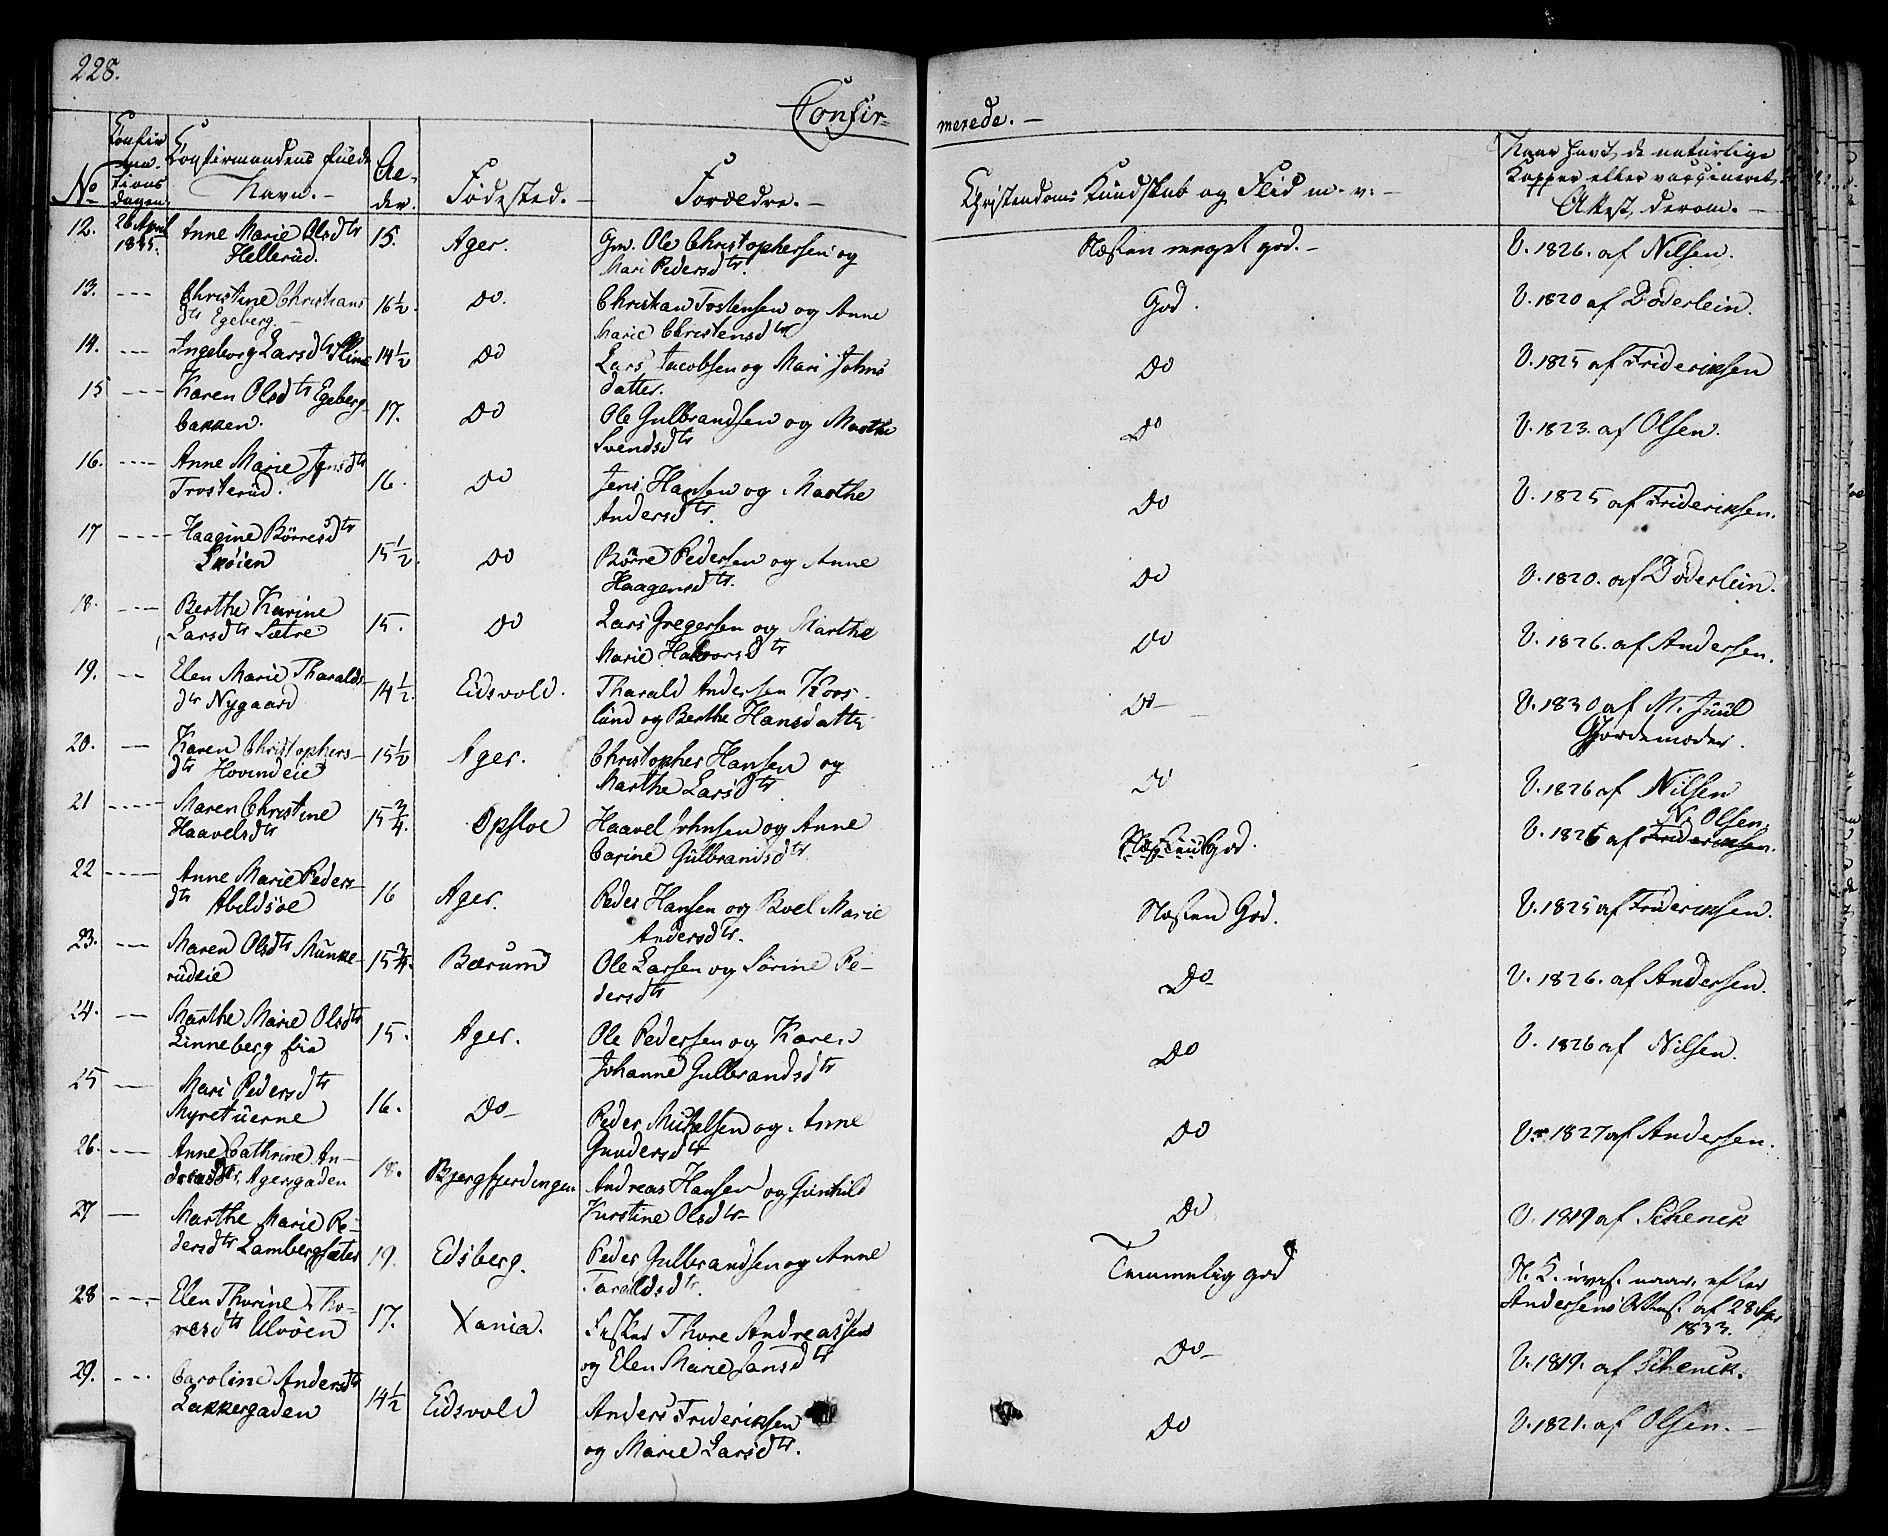 228.
Confir-
merede. -
No
Confir
ma-
tions
dagen
Confirmandens fulde
Navn. -
Al-
der.
Fødested. -
Forældre. -
Christendoms Kundskab og Flid m. v. -
Naar havt de naturlige
Kopper eller vaccineret,
Attest derom. -
12. 26 April
1835.
Anne Marie Olsdtr
Hellerud.
15. Ager. Gm. Ole Christophersen og
Mari Pedersdtr.
Næsten meget god. - V. 1826. af Nilsen.
13. --- Christine Christians
dtr Egeberg. -
16 1/2. Do. Christian Tostensen og Anne
Marie Christensdtr
God. V. 1820 af Döderlein.
14. --- Ingeborg Larsdtr
14 1/2 Do Lars Jacobsen og Mari Johns
datter.
Do V. 1825 af Frideriksen
15 --- Karen Olsdtr Egeberg
bakken.
17. Do Ole Gulbrandsen og Marthe
Svendsdtr
Do V. 1823. af Olsen.
16. --- Anne Marie Jensdtr
Trosterud.
16. Do Jens Hansen og Marthe
Andersdtr.
Do V. 1825 af Frideriksen.
17 ---- Haagine Börresdtr
Skøien
15 1/2. Do Börre Pedersen og Anne
Haagensdtr.
Do V. 1820. af Döderlein.
18. --- Berthe Karine
Larsdtr Sætre
15. Do Lars Gregersen og Marthe
Marie Halvorsdtr
Do V. 1826. af Andersen.
19. -- Elen Marie Tharalds-
dtr Nygaard
14 1/2. Eidsvold. Tharald Andersen Kors-
lund og Berthe Hansdatter
Do - V. 1830 af M. Juul
Gjordemoder.
20. -- Karen Christophers-
dtr Hovindeie
15 1/2 Ager. Christopher Hansen og
Marthe Larsdtr
Do V. 1826 af Nilsen
21 ----- Maren Christine
Haavelsdtr
15 3/4. Opsloe Haavel Johnsen og Anne
Carine Gulbrandsdtr.
God. N. Olsen.
V. 1826 af Frideriksen.
22 ---- Anne Marie Peders-
dtr Abildsøe
16 Ager. Peder Hansen og Boel Marie
Andersdtr.
Næsten God. V. 1825 af Frideriksen.
23. -- Maren Olsdtr Munke-
rudeie
15 3/4. Bærum Ole Larsen og Sörine Pe-
dersdtr
Do - V. 1826. af Andersen.
24. -- Marthe Marie Olsdtr
Linneberg
15. Ager. Ole Pedersen og Karen
Johanne Gulbrandsdtr
Do V. 1826 af Nilsen.
25 -- Mari Pedersdtr
Myretuerne
16. Do - Peder Michelsen og Anne
Gundersdtr
Do V. 1827 af Andersen.
26. --- Anne Cathrine An-
dreasdtr, Agersgaden
18. Bjergfjerdingen Andreas Hansen og Gunhild
Kirstine Olsdtr
Do V. 1819 af Schenck
27 -- Marthe Marie Pe-
dersdtr Lambergsæter
19. Edsberg. Peder Gulbrandsen og Anne
Taraldsdtr.
Temmelig god N. K. uvist naar, efter
Andersens Attest af 28
1833.
28 ---- Elen Thorine Tho-
resdtr Ulvöen
17. Xania. Fisker Thore Andreassen
og Elen Marie Jansdtr
Do - V. 1819. af Schenck.
29. --- Caroline Andersdtr
Lakkergaden
14 1/2 Eidsvold Anders Frideriksen
og Marie Larsdtr.
Do V. 1821. af Olsen. -